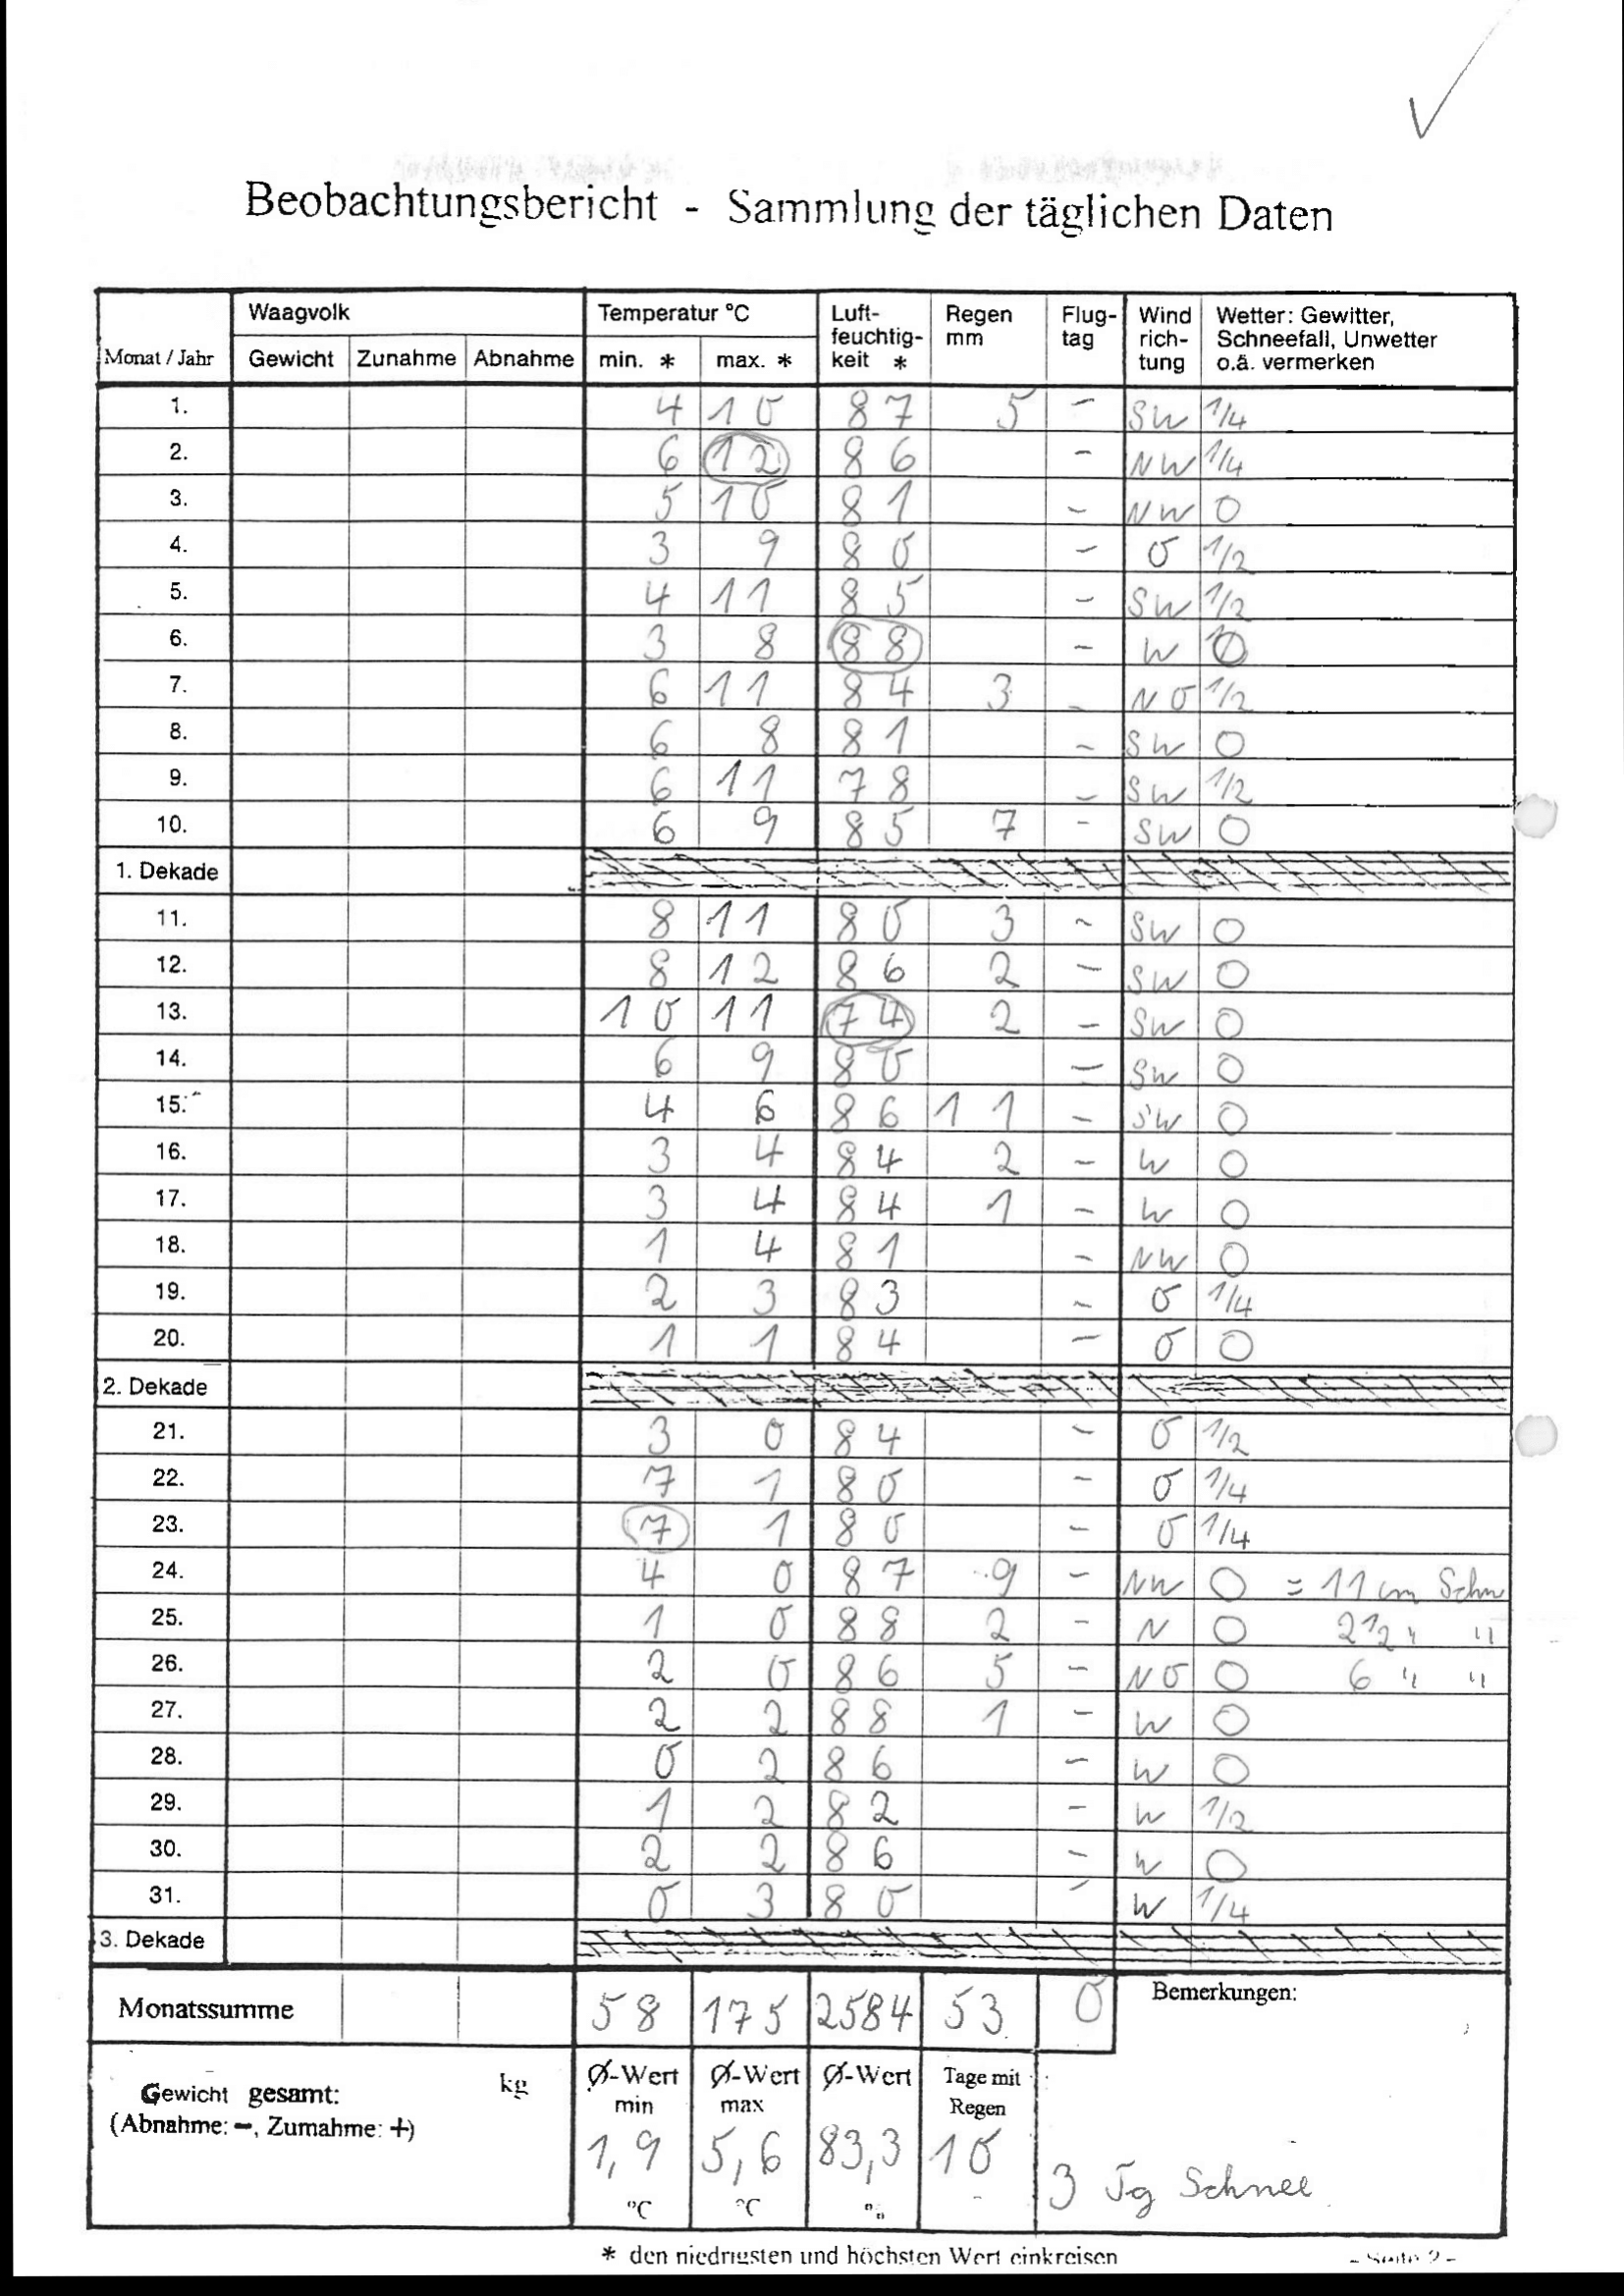 Beobachtungsbericht - Sammlung der täglichen Daten
Monat / Jahr Waagvolk Temperatur °C Luft-feuchtig-keit * Regen mm Flug-tag Wind rich-tung Wetter: Gewitter, Schneefall, Unwetter o.ä. vermerken
Gewicht Zunahme Abnahme min. * max. *
1. 4 10 87 5 – SW 1/4
2. 6 12 86 – NW 1/4
3. 5 10 81 – NW 0
4. 3 9 80 – O 1/2
5. 4 11 85 – SW 1/2
6. 3 8 88 – W 0
7. 6 11 84 3 – NO 1/2
8. 6 8 81 – SW 0
9. 6 11 78 – SW 1/2
10. 6 9 85 7 – SW 0
1. Dekade
11. 8 11 80 3 – SW 0
12. 8 12 86 2 – SW 0
13. 10 11 74 2 – SW 0
14. 6 9 80 – SW 0
15. 4 6 86 11 – SW 0
16. 3 4 84 2 – W 0
17. 3 4 84 1 – W 0
18. 1 4 81 – NW 0
19. 2 3 83 – O 1/4
20. 1 1 84 – O 0
2. Dekade
21. 3 0 84 – O 1/2
22. 7 1 80 – O 1/4
23. 7 1 80 – O 1/4
24. 4 0 87 9 – NW 0 = 11 cm Schn
25. 1 0 88 2 – N 0 2 1/2 " "
26. 2 0 86 5 – NO 0 6 " "
27. 2 2 88 1 – W 0
28. 0 2 86 – W 0
29. 1 2 82 – W 1/2
30. 2 2 86 – W 0
31. 0 3 80 – W 1/4
3. Dekade
Monatssumme 58 175 2584 53 0 Bemerkungen:
Gewicht gesamt: kg Ø-Wert min Ø-Wert max Ø-Wert Tage mit Regen
(Abnahme: –, Zumahme: +)
1,9 5,6 83,3 10
°C °C
3 Tg Schnee
* den niedrigsten und höchsten Wert einkreisen
- Seite 2 -